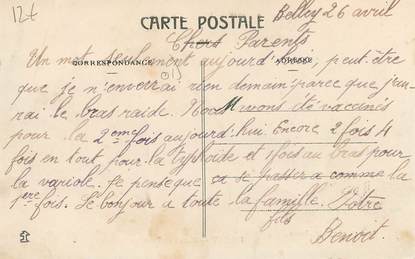 12€
Belley 26 avril
CARTE POSTALE
Chers Parents
CORRESPONDANCE
ADRESSE
Un mot seulement aujourd'hui, peut être
que je n'enverrai rien demain parce que j'au-
rai le bras raide. Nous avons été vaccinés
pour la 2eme fois aujourd'hui. Encore 2 fois 4
fois en tout pour la typhoïde et 1 fois au bras pour
la variole. Je pense que ça se passera comme la
1ère fois. Le bonjour à toute la famille. Votre
fils
Benoit.